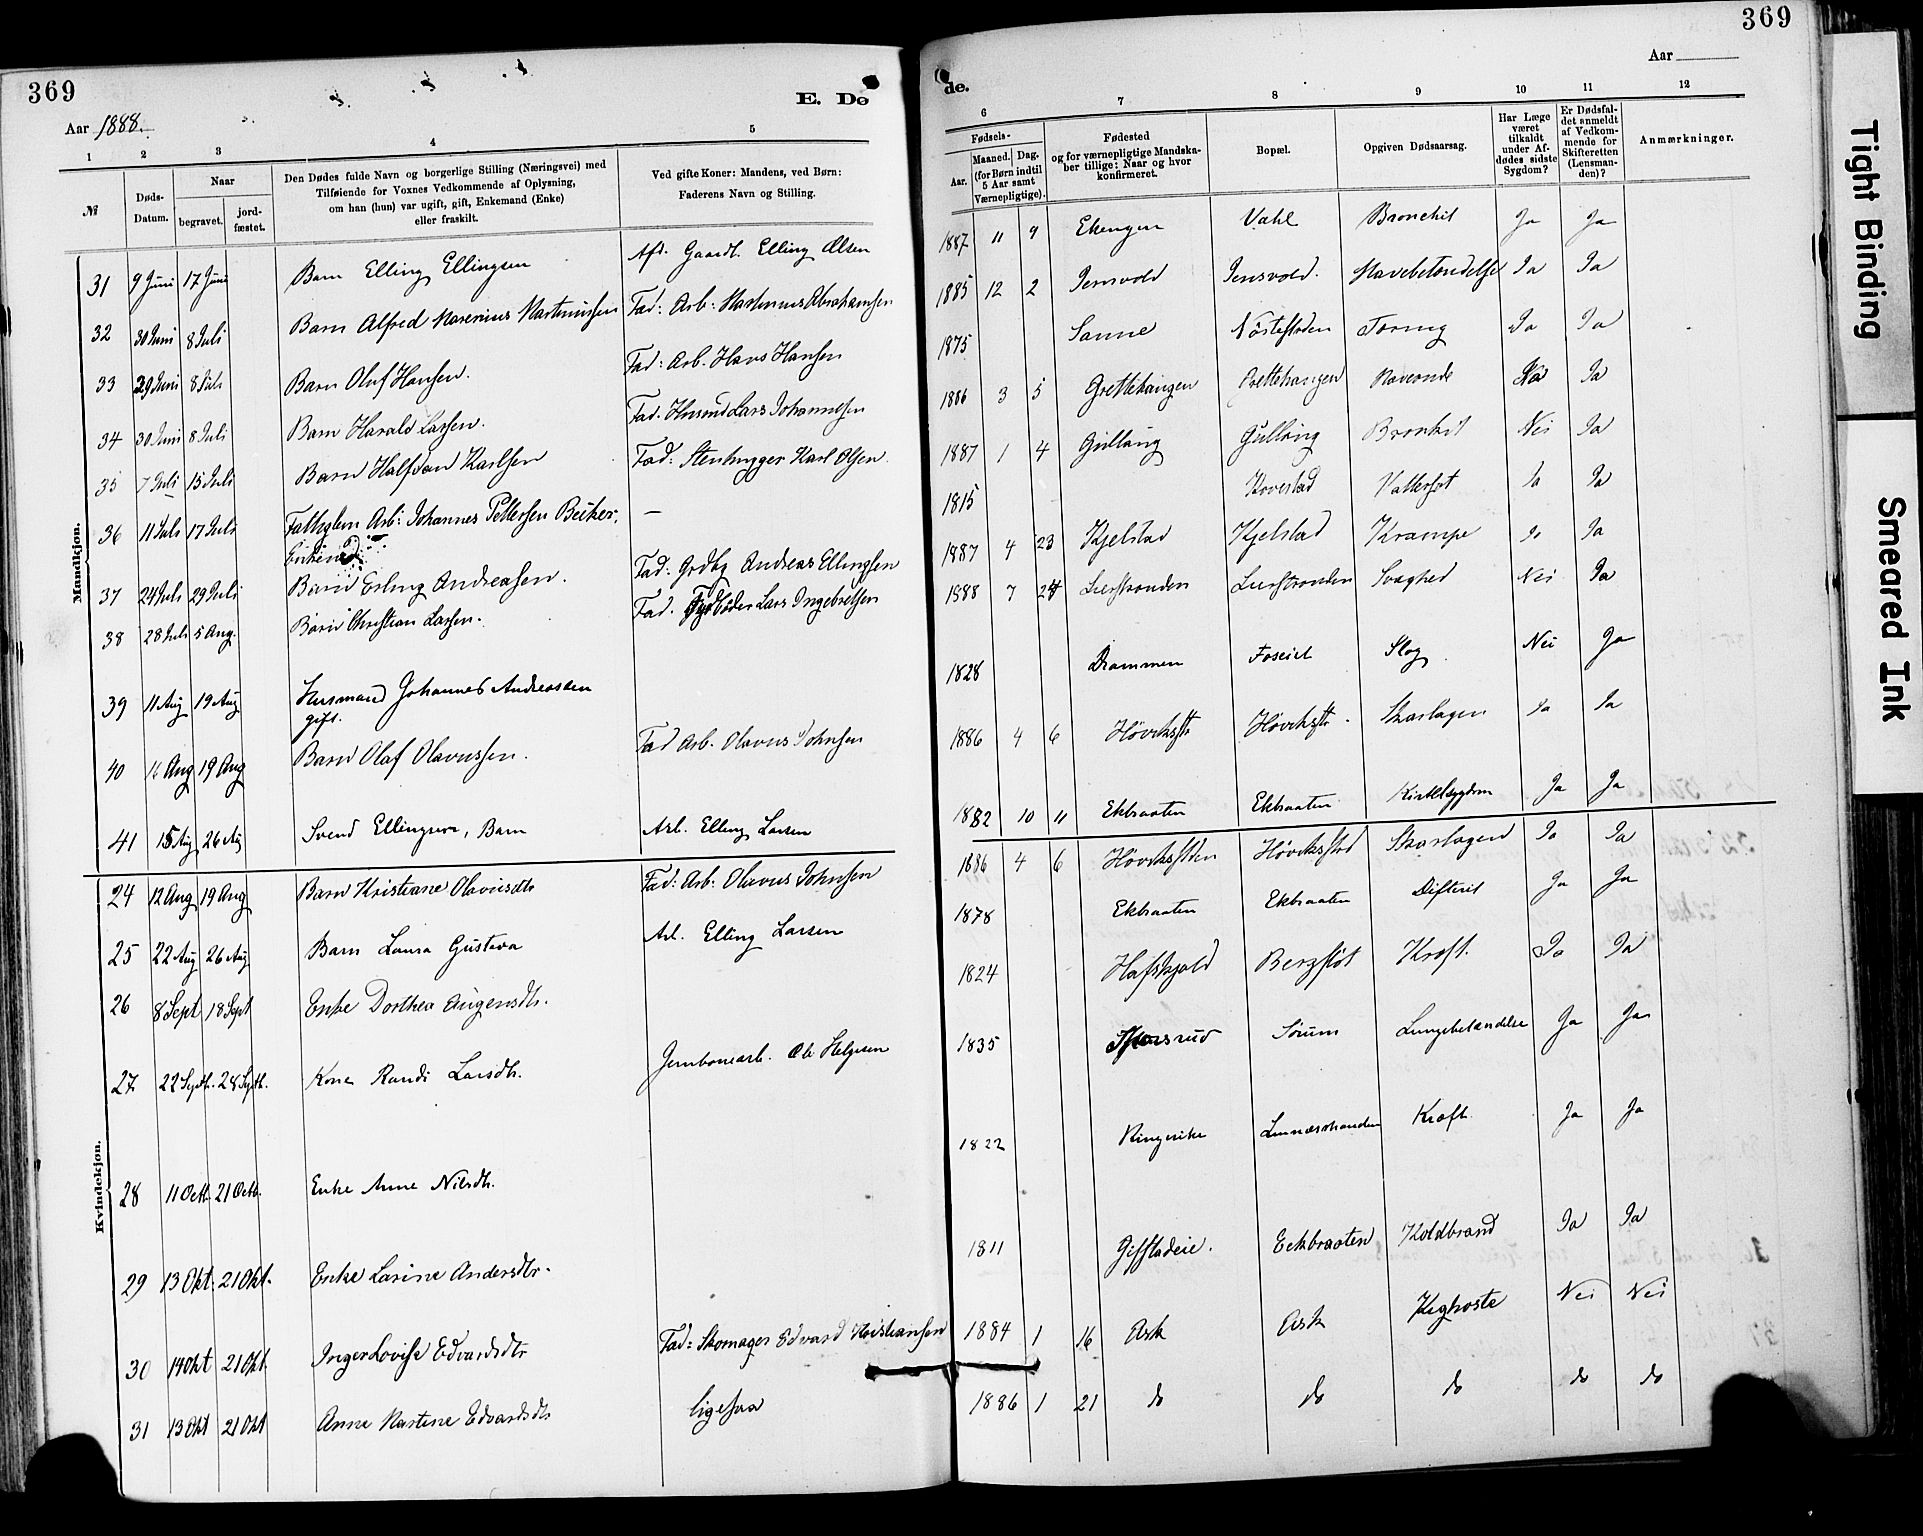 369
E. Dø
Aar 1888.
1 2 3 4 5
№
Døds-Datum.
Naar
begravet.
jord-fæstet.
Den Dødes fulde Navn og borgerlige Stilling (Næringsvei) med
Tilføiende for Voxnes Vedkommende af Oplysning,
om han (hun) var ugift, gift, Enkemand (Enke)
eller fraskilt.
Ved gifte Koner: Mandens, ved Børn:
Faderens Navn og Stilling.
Mandkjøn.
31 9 Juni 17 Juni Barn Elling Ellingsen Aft. Gaardb. Elling Olsen
32 30 Juni 8 Juli Barn Alfred Marenius Martinusen Fad: Arb: Martinus Abrahamsen
33 29 Juni 8 Juli Barn Oluf Hansen. Fad: Arb. Hans Hansen
34 30 Juni 8 Juli Barn Harald Larsen. Fad. Husmd Lars Johannesen
35 7 Juli 15 Juli Barn Halfdan Karlsen Fad: Stenhugger Karl Olsen
36 11 Juli 17 Juli Fattiglem Arb: Johannes Pettersen Beiker, —
Enkem.
37 24 Juli 29 Juli Barn Erling Andreasen. Fad: Grdbg Andreas Ellingsen
38 28 Juli 5 Aug. Barn Christian Larsen. Fad. Lars Ingebretsen
39 11 Aug 19 Aug Husmand Johannes Andreassen
gift.
40 14 Aug 19 Aug Barn Olaf Olavussen. Fad Arb. Olavus Johnsen
41 15 Aug 26 Aug Svend Ellingsen, Barn Arb. Elling Larsen
Kvindekjøn.
24 12 Aug 19 Aug Barn Kristiane Olavusdtr Fad: Arb: Olavus Johnsen
25 22 Aug 26 Aug Barn Laura Gustava Arb. Elling Larsen
26 8 Sept 18 Sept Enke Dorthea Augensdtr.
27 22 Septb. 28 Septb. Kone Randi Larsdtr. Jernbanearb. Ole Helgesen
28 11 Octb. 21 Octb. Enke Anne Nilsdtr.
29 13 Okt. 21 Okt. Enke Larine Andersdtr.
30 14 Okt 21 Okt. Inger Lovise Edvardsdtr Fad: Skomager Edvard Kristiansen
31 13 Okt 21 Okt Anne Martine Edvardsdtr ligesaa
369
de.
Aar
6 7 8 9 10 11 12
Fødsels-
Aar.
Maaned. Dag.
(for Børn indtil
5 Aar samt
Værnepligtige).
Fødested
og for værnepligtige Mandska-
ber tillige: Naar og hvor
konfirmeret.
Bopæl.
Opgiven Dødsaarsag.
Har Læge
været
tilkaldt
under Af-
dødes sidste
Sygdom?
Er Dødsfal-
det anmeldt
af Vedkom-
mende for
Skifteretten
(Lensman-
den)?
Anmærkninger.
1887 11 9 Ekengen Vahl Bronchit Ja Ja
1885 12 2 Jensvold Jensvold. Mavebetændelse Ja Ja
1875 Sanne Nøstestøden Tæring Ja Ja
1886 3 5 Grettehaugen Grettehaugen Maveonde Ja
1887 1 4 Gullaug Gullaug Bronkit Nei Ja
1815 Hovestad Vattersot Ja Ja
1887 4 23 Kjelstad Kjelstad Krampe Ja Ja
1888 7 24 Lierstranden Lierstranden Svaghed Nei Ja
1828 Drammen Foseiet Slag Nei Ja
1886 4 6 Høvikstr Høvikstr. Skarlagen Ja Ja
1882 10 11 Ekbraaten Ekbraaten Kirtelsygdom Ja Ja
1886 4 6 Høvikstden Høvikstod Skarlagen Ja Ja
1878 Ekbraaten Ekbraaten Difterit Ja Ja
1824 Hafskjold Bergfløt Kræft. Ja Ja
1835 Sørum Lungebetændelse Ja Ja
1822 Ringerike Linnæsstranden Kræft. Ja Ja
1811 Gifstadeie. Eckbraaten Koldbrand Ja Ja
1884 1 16 Ask Ask Kighoste Nei Nei
1886 1 21 do do do do do
Tight Binding
Smeared Ink